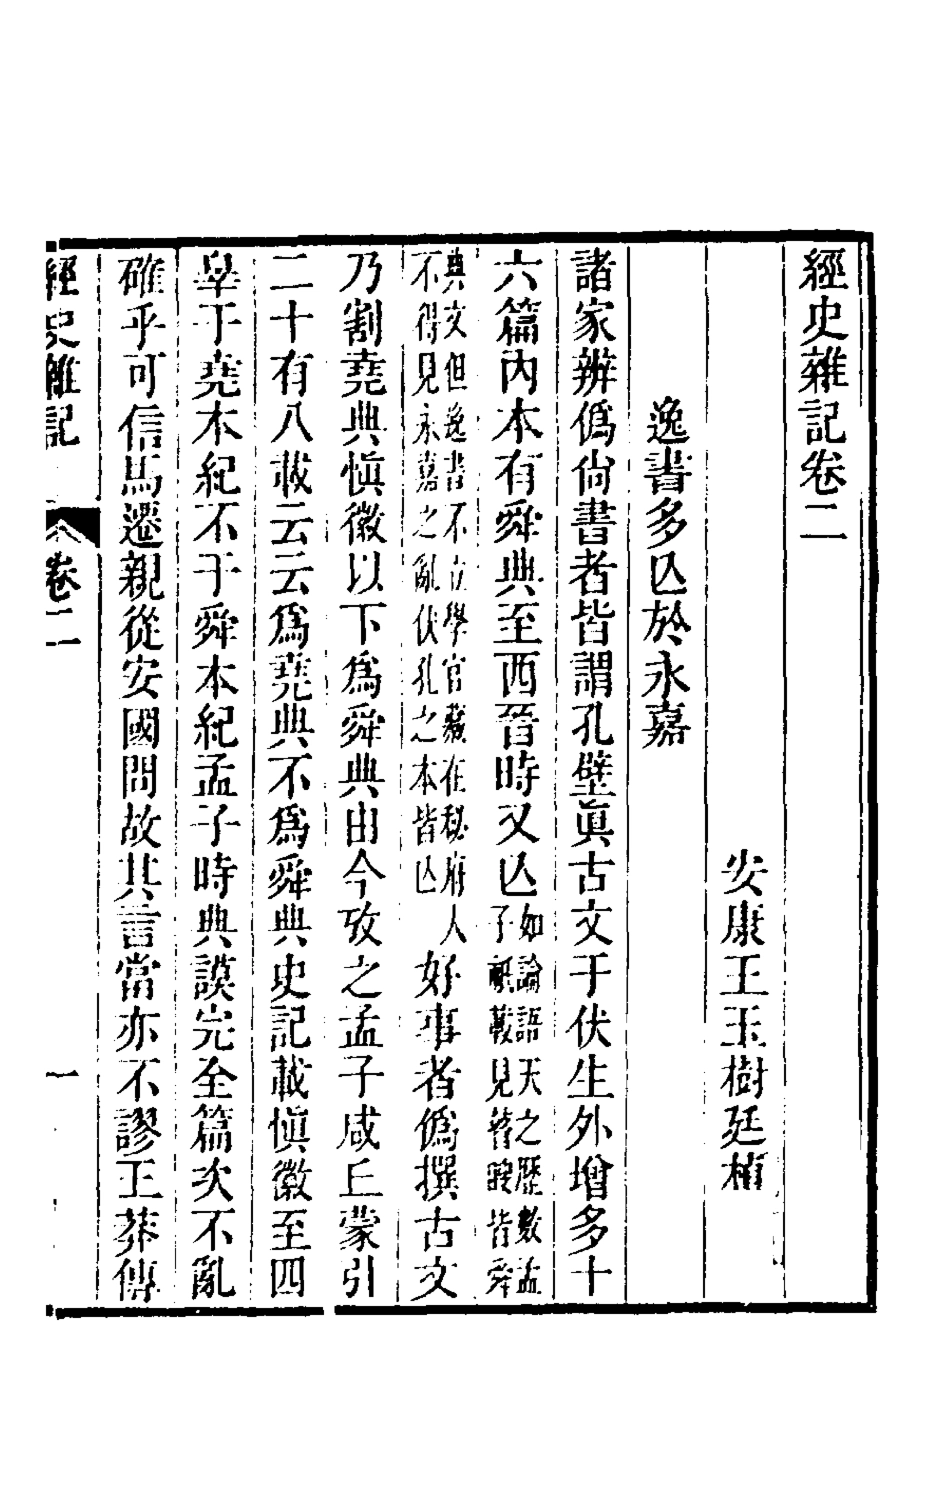 經史雜記卷二
安康王玉樹廷楨
逸書多亾於永嘉
諸家辨僞尙書者皆謂孔壁眞古文于伏生外增多十
六篇內本有舜典至西晉時又亾如論語天之歷數孟
子祇載見瞽瞍皆舜
典文但逸書不立學官藏在秘府人
不得見永嘉之亂伏孔之本皆亾
好事者僞撰古文
乃割堯典愼徽以下爲舜典由今攷之孟子咸丘蒙引
二十有八載云云爲堯典不爲舜典史記載愼徽至四
辠于堯本紀不于舜本紀孟子時典謨完全篇次不亂
確乎可信馬遷親從安國問故其言當亦不謬王莽傳
經史雜記
卷二
一